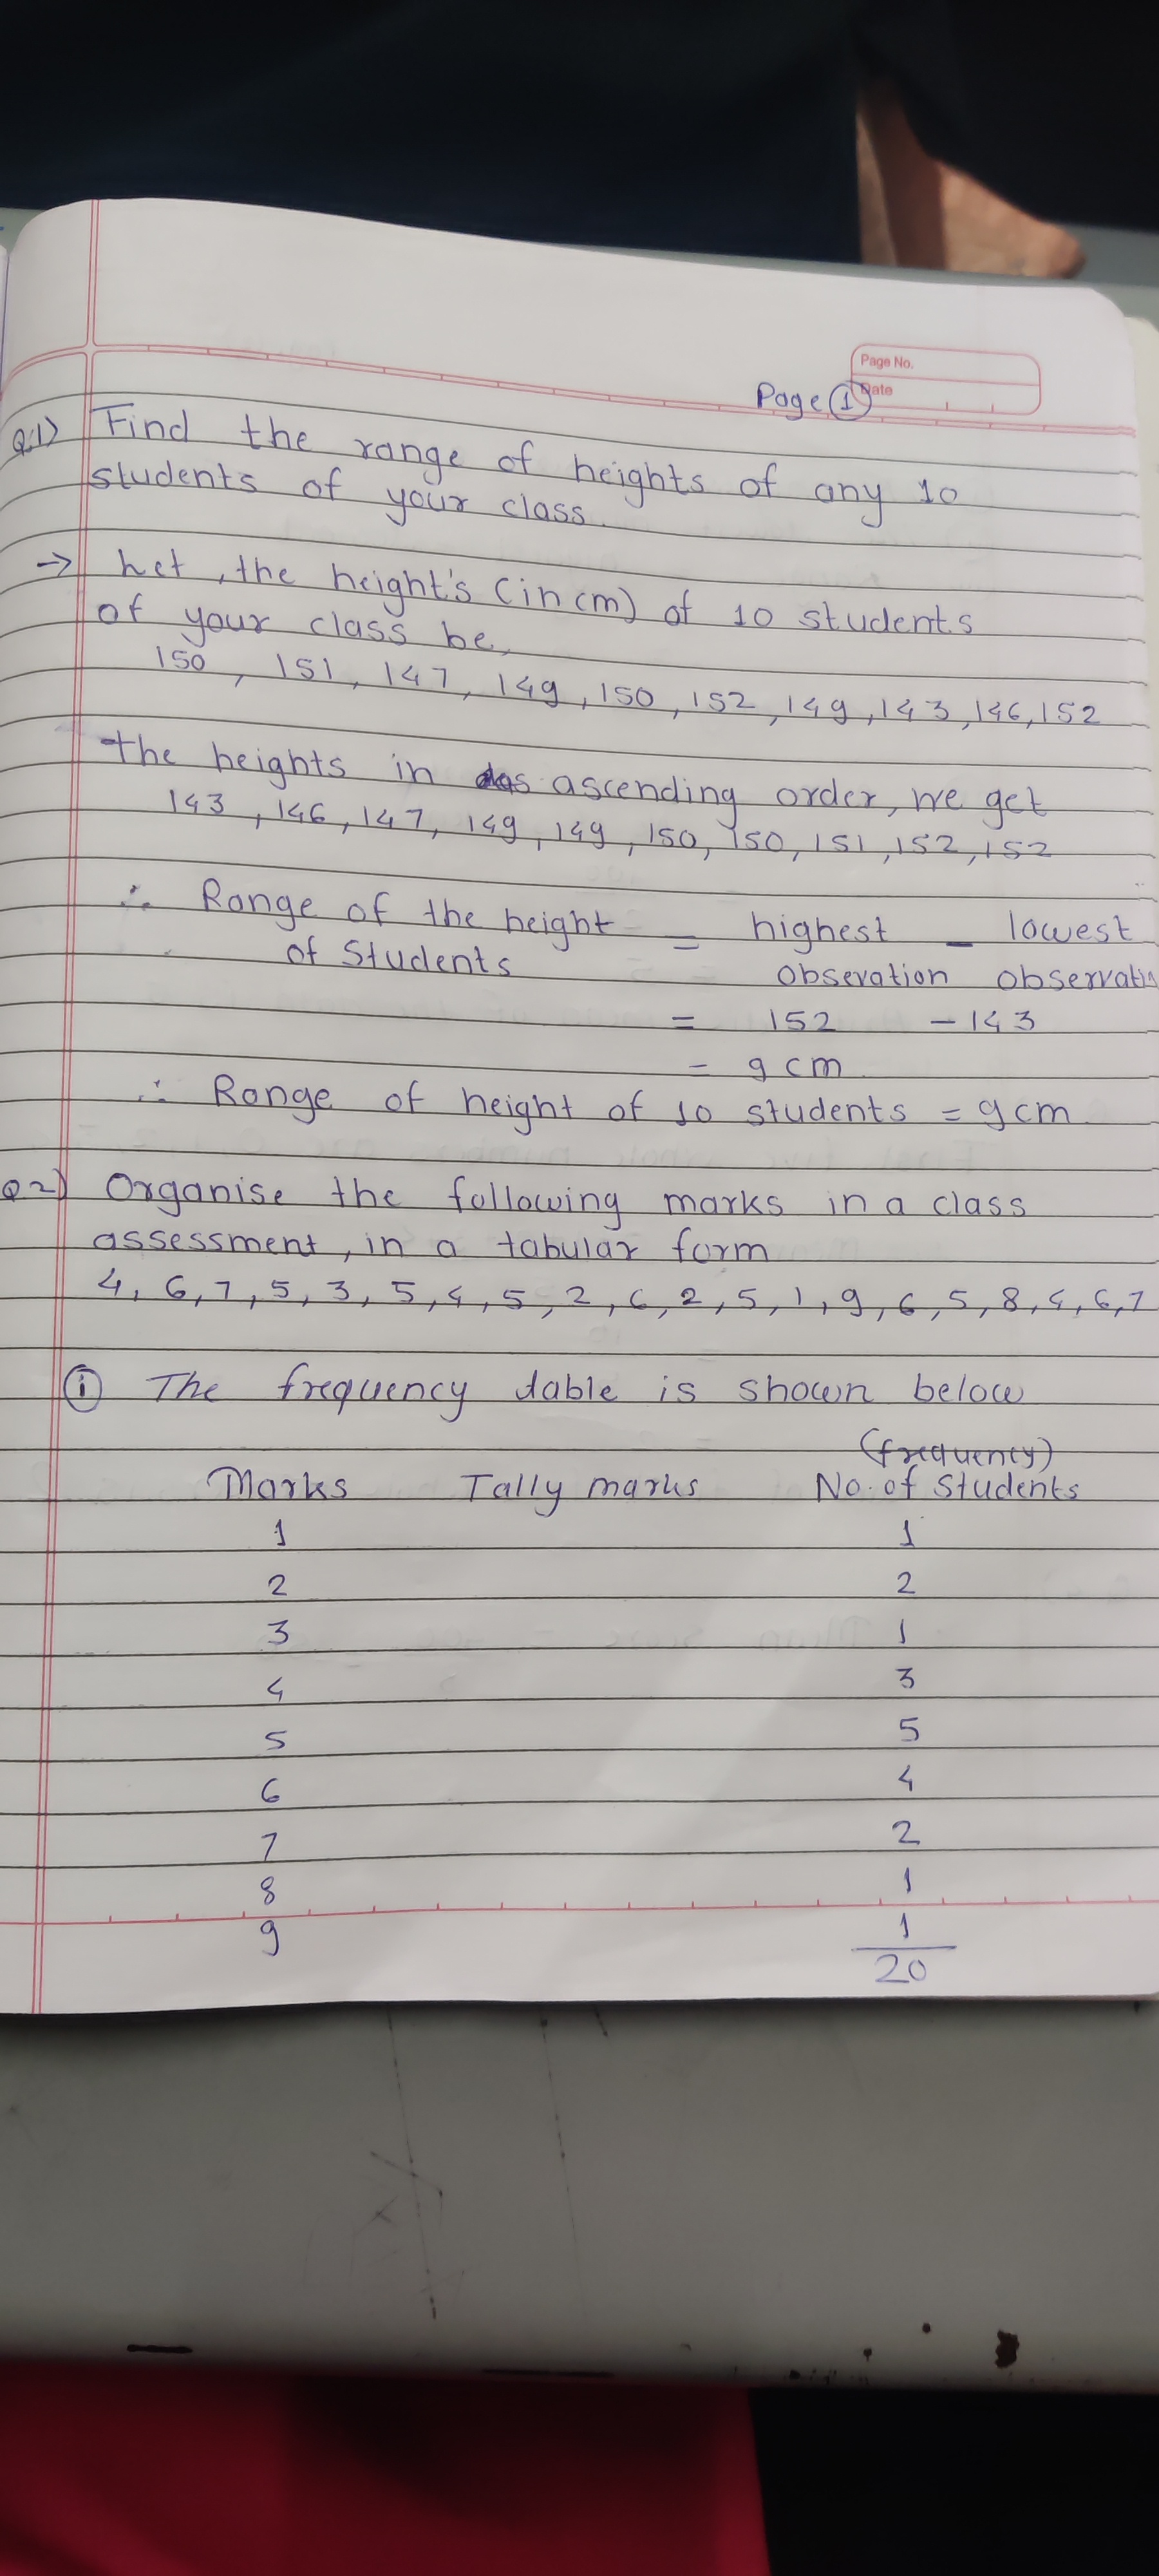 Page No.
Page ① Date
Q.1) Find the range of heights of any 10
students of your class.
→ Let, the height's (in cm) of 10 students
of your class be,
150, 151, 147, 149, 150, 152, 149, 143, 146, 152
the heights in ascending order, we get
143, 146, 147, 149, 149, 150, 150, 151, 152, 152
∴ Range of the height = highest - lowest
of Students obsevation observatio
= 152 - 143
= 9 cm
∴ Range of height of 10 students = 9 cm.
Q2) Organise the following marks in a class
assessment, in a tabular form
4, 6, 7, 5, 3, 5, 4, 5, 2, 6, 2, 5, 1, 9, 6, 5, 8, 4, 6, 7
ⓘ The frequency dable is shown below
(frequency)
Marks Tally marks No. of Students
1 1
2 2
3 1
4 3
5 5
6 4
7 2
8 1
9 1
20